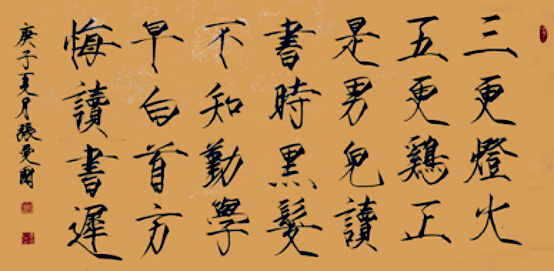 三更燈火
五更鷄正
是男兒讀
書時黑髮
不知勤學
早白首方
悔讀書遲
庚子夏月張愛國